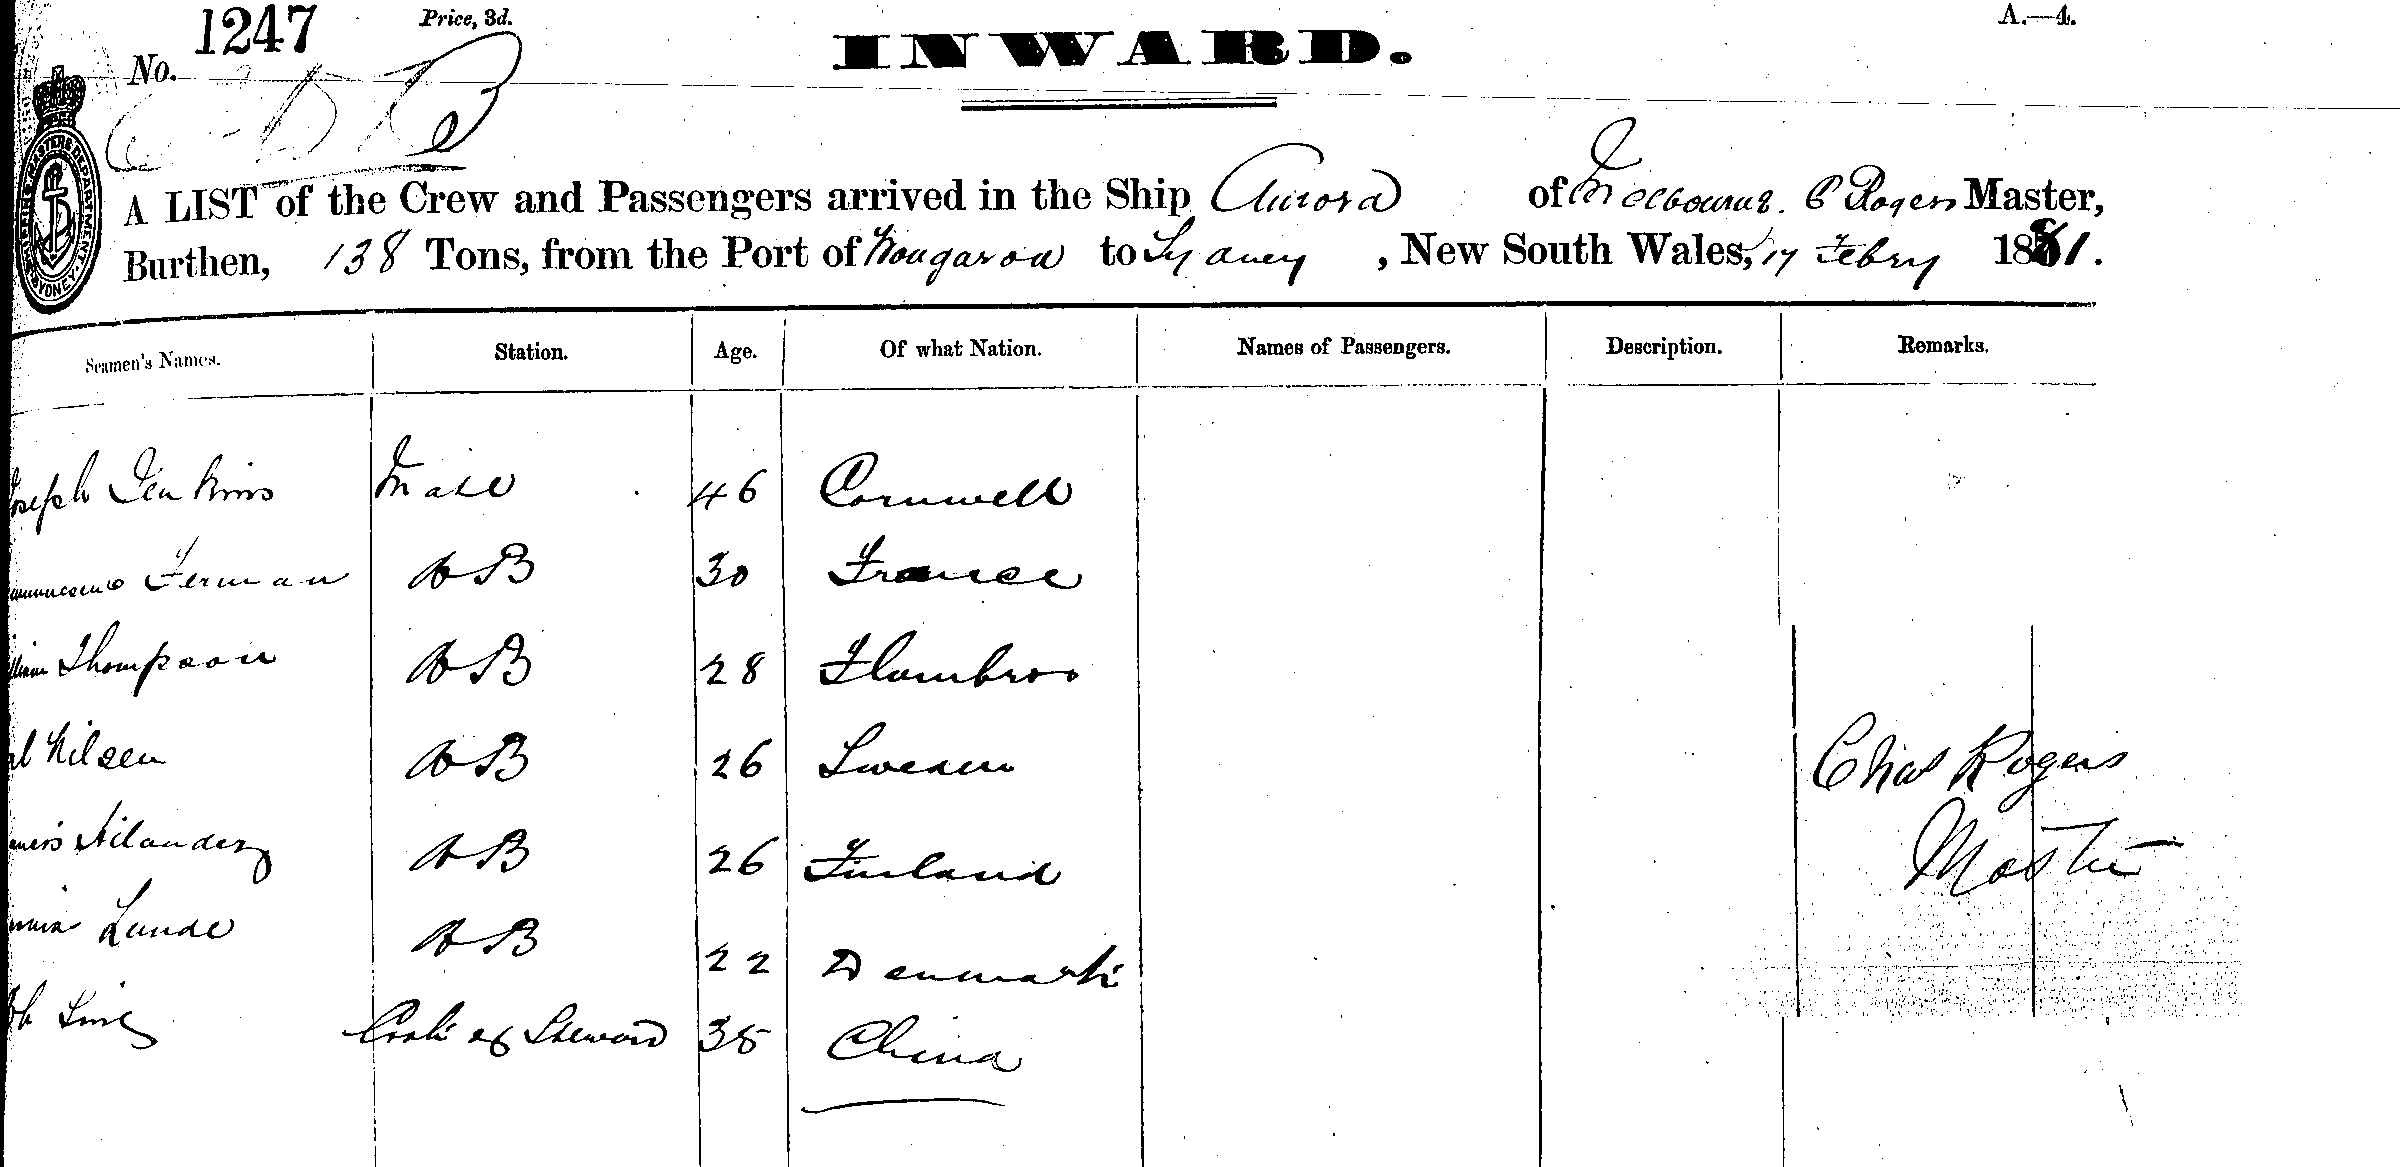 No. 1247 Price, 3d. INWARD. A.—4.
A LIST of the Crew and Passengers arrived in the Ship Aurora of Melbourne. C Rogers Master,
Burthen, 138 Tons, from the Port of to Sydney, New South Wales, 17 Febry 1881.
Seamen's Names. Station. Age. Of what Nation. Names of Passengers. Description. Remarks.
Joseph Jenkins Mate 46 Cornwell
Ferman AB 30 France
Thompson AB 28 Flambro
Nilsen AB 26 Sweden
AB 26 Finland
Lunde AB 22 Denmark
Cook & Steward 38 China
Chas Rogers
Master